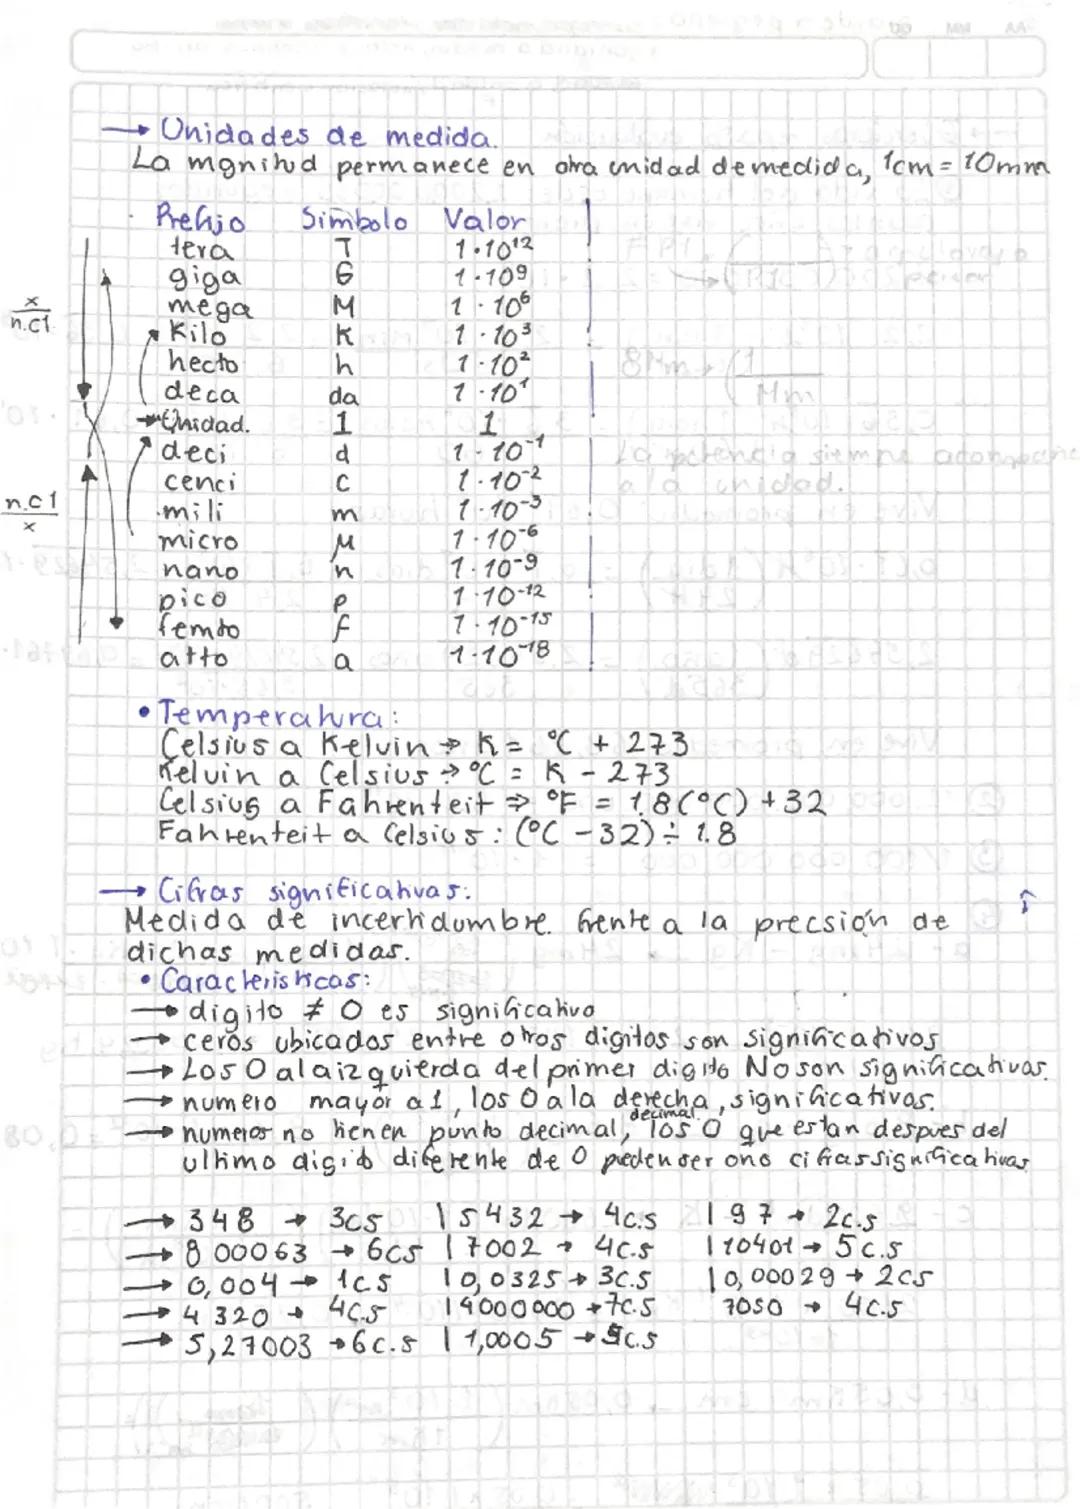 → Unidades de medida.
La mgnitud permanece en otra unidad de medida, 1cm = 10mm
Prefijo Simbolo Valor
tera T 1·10¹²
giga G 1·10⁹
mega M 1·10⁶
x/n.c1
Kilo K 1·10³
hecto h 1·10²
deca da 1·10¹
→ Unidad. 1 1
deci d 1·10⁻¹
cenci c 1·10⁻²
n.c1/x
mili m 1·10⁻³
micro μ 1·10⁻⁶
nano n 1·10⁻⁹
pico p 1·10⁻¹²
femto f 1·10⁻¹⁵
atto a 1·10⁻¹⁸
• Temperatura:
Celsius a Kelvin → K = °C + 273
Kelvin a Celsius → °C = K - 273
Celsius a Fahrenteit ⇒ °F = 1.8(°C) + 32
Fahrenteit a Celsius: (°C - 32) ÷ 1.8
→ Cifras significativas:
Medida de incertidumbre. frente a la precsión de
dichas medidas.
• Caracteristicas:
→ digito ≠ 0 es significativo
→ ceros ubicados entre otros digitos son significativos
→ Los 0 a la izquierda del primer digito No son significativas.
→ numero mayor a 1, los 0 a la derecha, significativas.
decimal.
→ numeros no tienen punto decimal, los 0 que estan despues del
ultimo digito diferente de 0 pueden ser ono cifras significativas
→ 348 → 3cs | 5432 → 4c.s | 97 → 2c.s
→ 800063 → 6cs | 7002 → 4c.s | 10401 → 5c.s
→ 0,004 → 1c.s | 0,0325 → 3c.s | 0,00029 → 2cs
→ 4320 → 4c.s | 4000000 → 7c.s 7050 → 4c.s
→ 5,27003 → 6c.s | 1,0005 → 5c.s